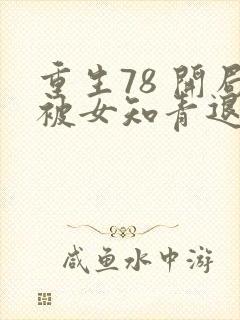 重生78 開局
被女知青退
咸鱼水中游